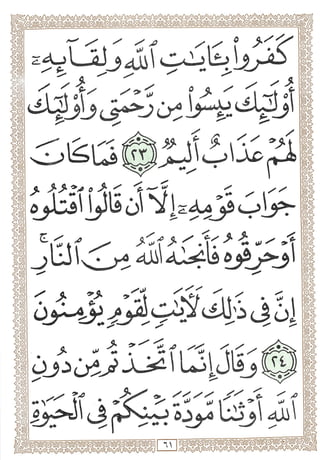 كَفَرُوا۟ بِـَٔايَـٰتِ ٱللَّهِ وَلِقَآئِهِۦٓ
أُو۟لَـٰٓئِكَ يَئِسُوا۟ مِن رَّحْمَتِى وَأُو۟لَـٰٓئِكَ
لَهُمْ عَذَابٌ أَلِيمٌ ٢٣ فَمَا كَانَ
جَوَابَ قَوْمِهِۦٓ إِلَّآ أَن قَالُوا۟ ٱقْتُلُوهُ
أَوْ حَرِّقُوهُ فَأَنجَىٰهُ ٱللَّهُ مِنَ ٱلنَّارِ ۚ
إِنَّ فِى ذَٰلِكَ لَـَٔايَـٰتٍ لِّقَوْمٍ يُؤْمِنُونَ
٢٤ وَقَالَ إِنَّمَا ٱتَّخَذْتُم مِّن دُونِ
ٱللَّهِ أَوْثَـٰنًا مَّوَدَّةَ بَيْنِكُمْ فِى ٱلْحَيَوٰةِ
٦١